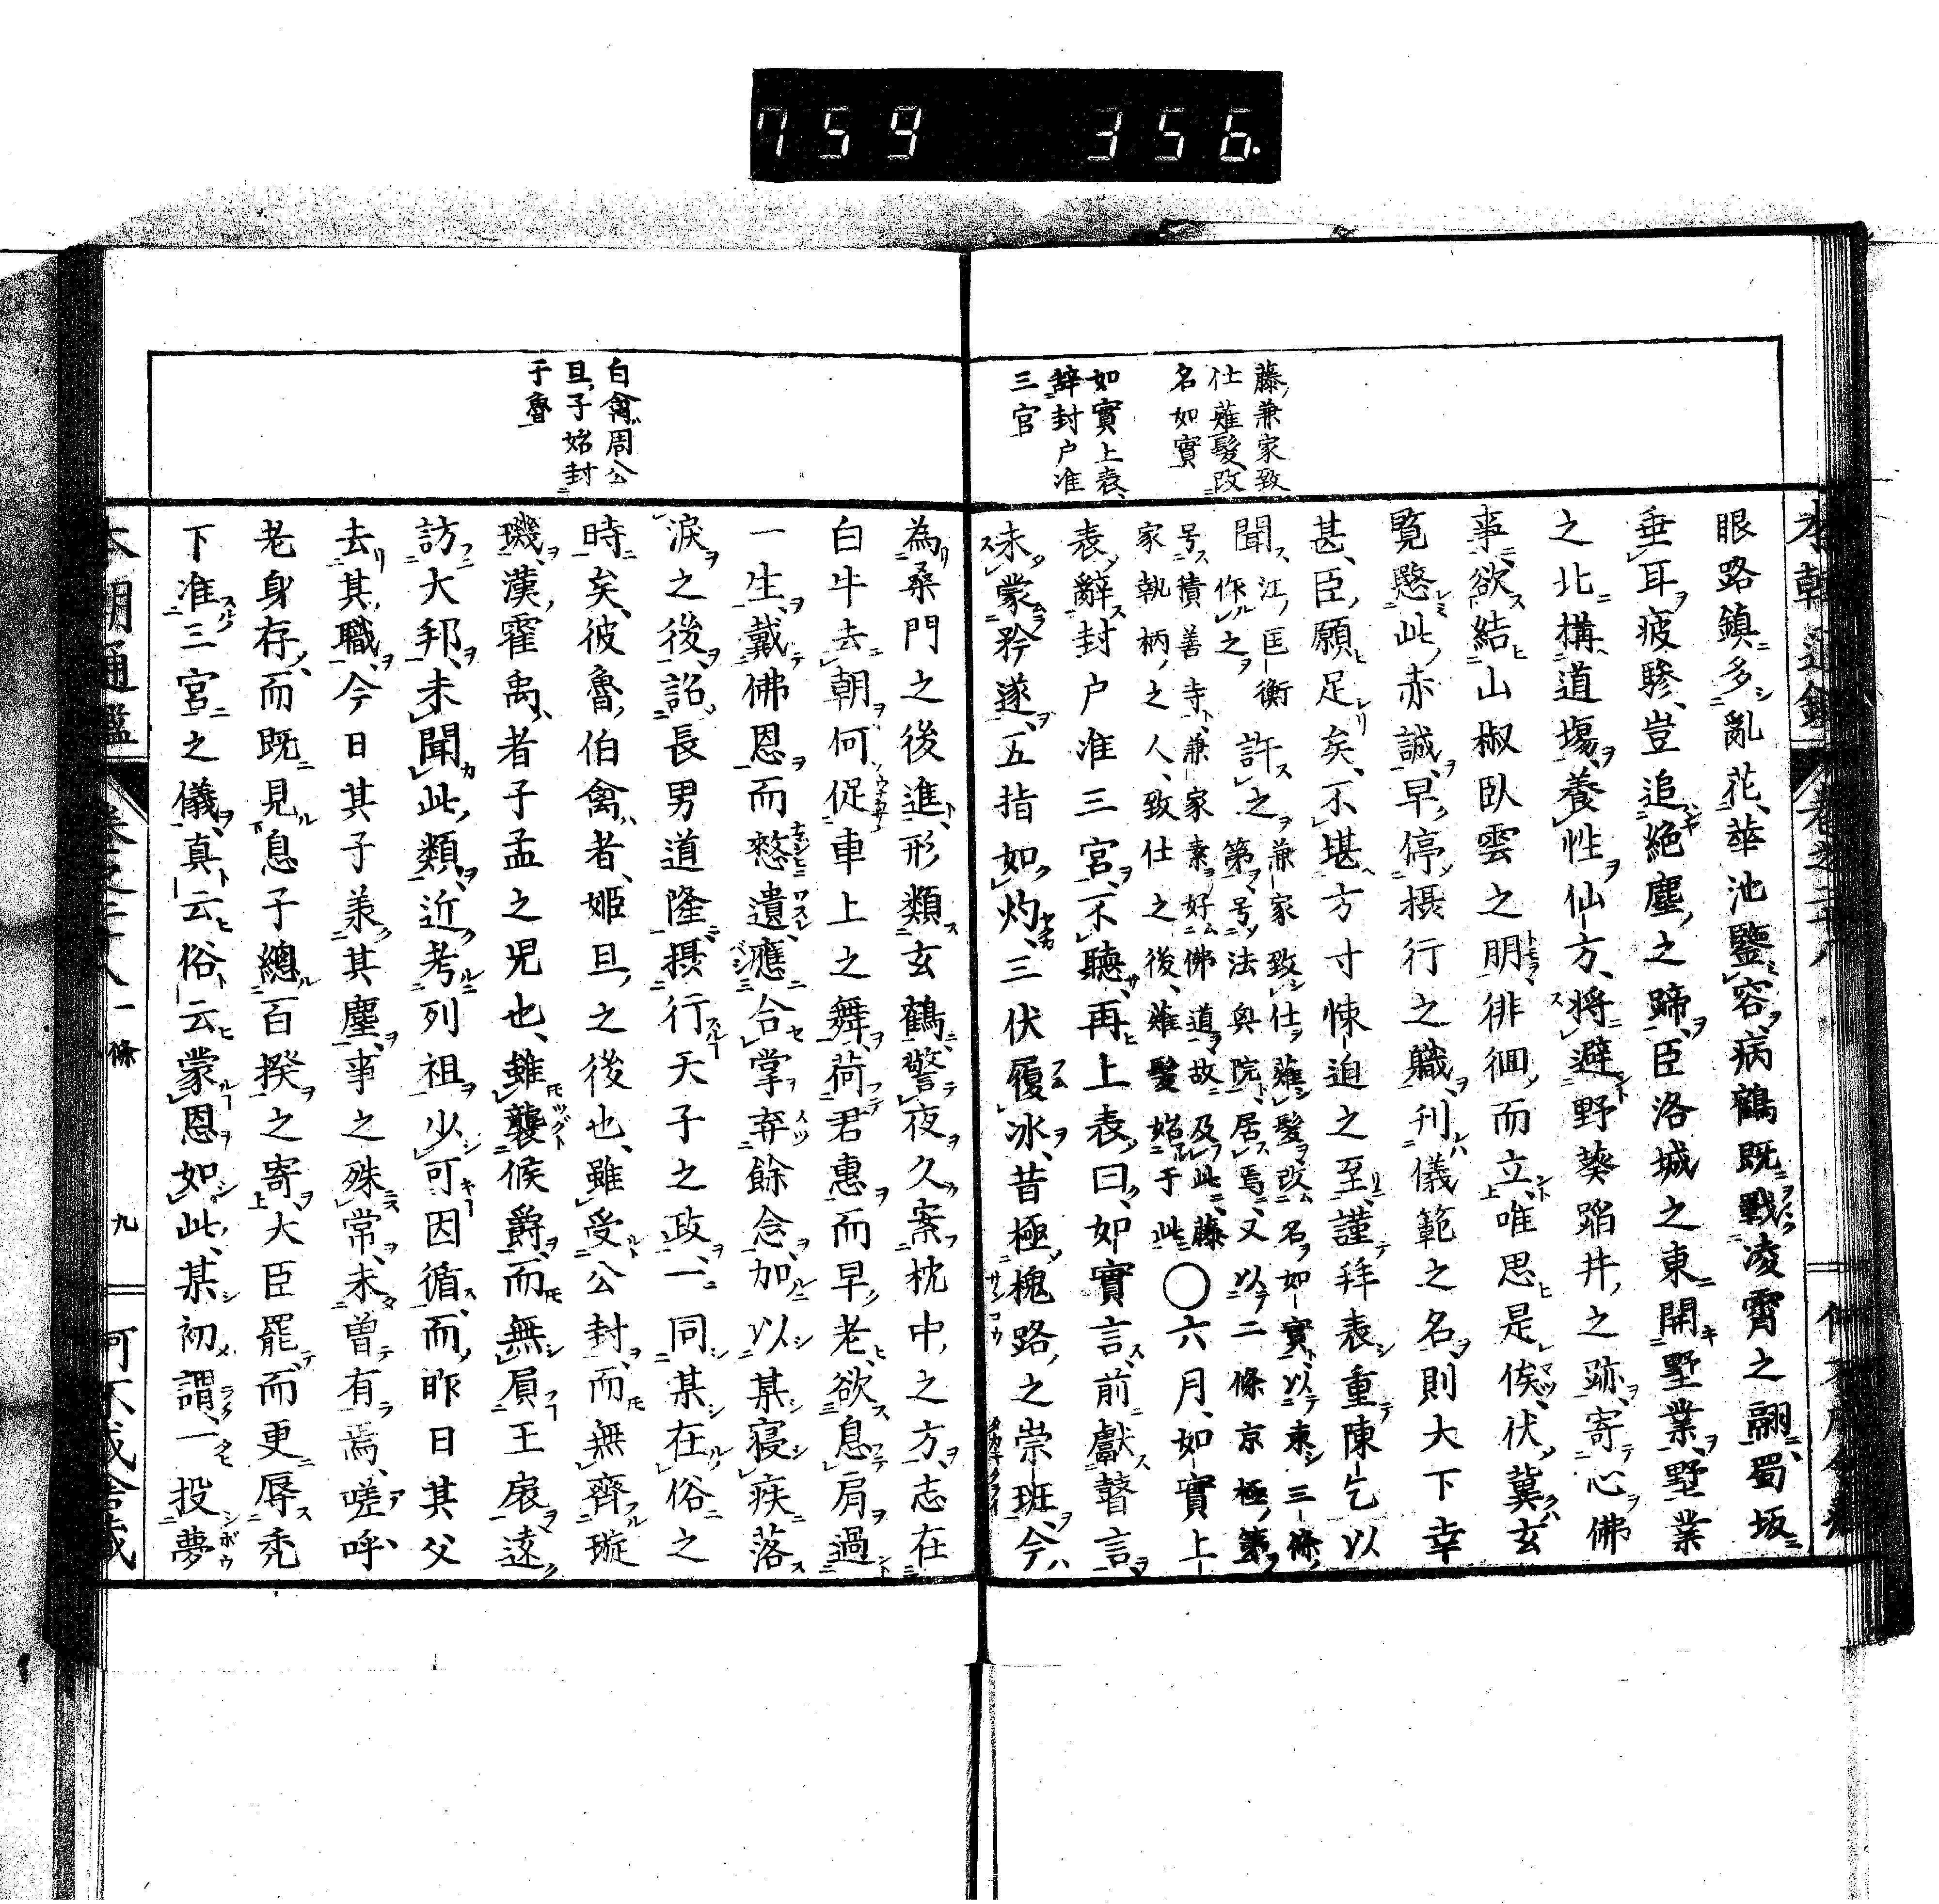 759 356.
藤兼家致
仕薙髮改
名如實
如實上表
辞封户准
三宮
眼路鎮多亂花華池鑒容病鶴既戰凌霄之翮蜀坂
垂耳疲驂豈追絕塵之蹄臣洛城之東開墅業墅業
之北構道場養性仙方將避野葵蹈井之跡寄心佛
事欲結山椒臥雲之朋徘徊而立唯思是俟伏冀玄
覽愍此赤誠早停摂行之職刊儀範之名則大下幸
甚臣願足矣不堪方寸悚迫之至謹拜表重陳乞以
聞江匡衡作之許之兼家致仕薙髮改名如實以東三條
第号法興院居焉又以二條京極第
号積善寺兼家素好佛道故及此藤
家執柄之人致仕之後薙髮始于此〇六月如實上
表辭封户准三宮不聽再上表曰如實言前獻瞽言
未蒙矜遂五指如灼三伏履冰昔極槐路之崇班今
白禽周公
旦子始封
于魯
為桑門之後進形類玄鶴警夜久案枕中之方志在
白牛去朝何促車上之舞荷君惠而早老欲息肩過
一生戴佛恩而憖遺應合掌弃餘念加以某寝疾落
淚之後詔長男道隆摂行天子之政一同某在俗之
時矣彼魯伯禽者姬旦之後也雖受公封而無齊璇
璣漢霍禹者子孟之児也雖襲候爵而無屓王扆遠
訪大邦未聞此類近考列祖少可因循而昨日其父
去其職今日其子羕其塵事之殊常未曽有焉嗟呼
老身存而既見息子總百揆之寄大臣罷而更辱禿
下准三宮之儀真云俗云蒙恩如此某初謂一投夢
本朝通鑑
一條
九